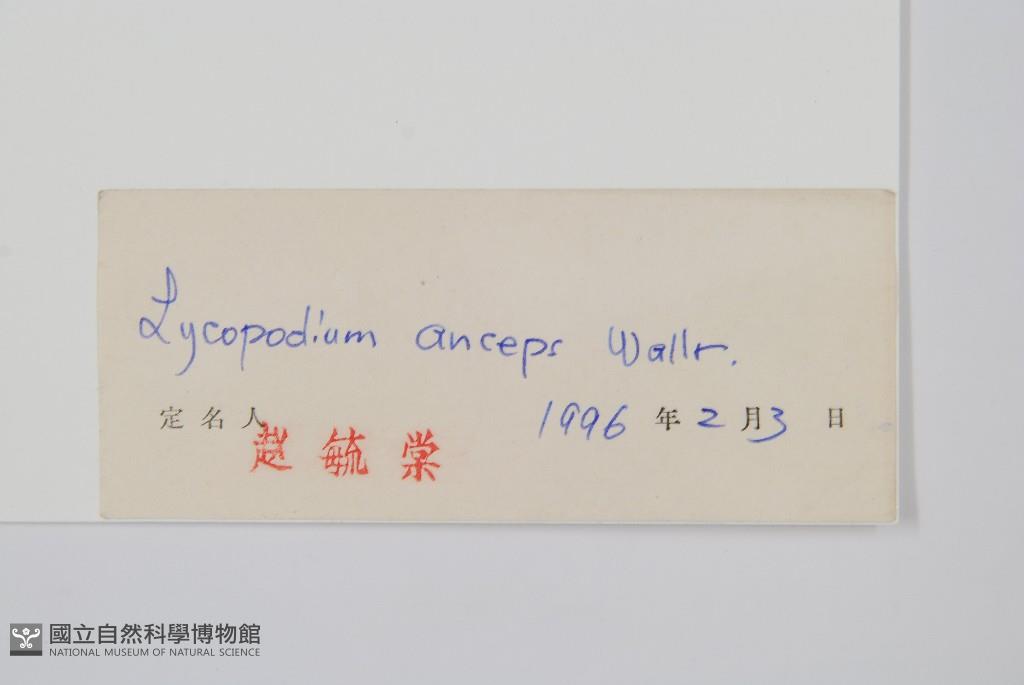 Lycopodium anceps Wallr.
定名人 1996 年 2 月 3 日
赵毓棠
國立自然科學博物館
NATIONAL MUSEUM OF NATURAL SCIENCE